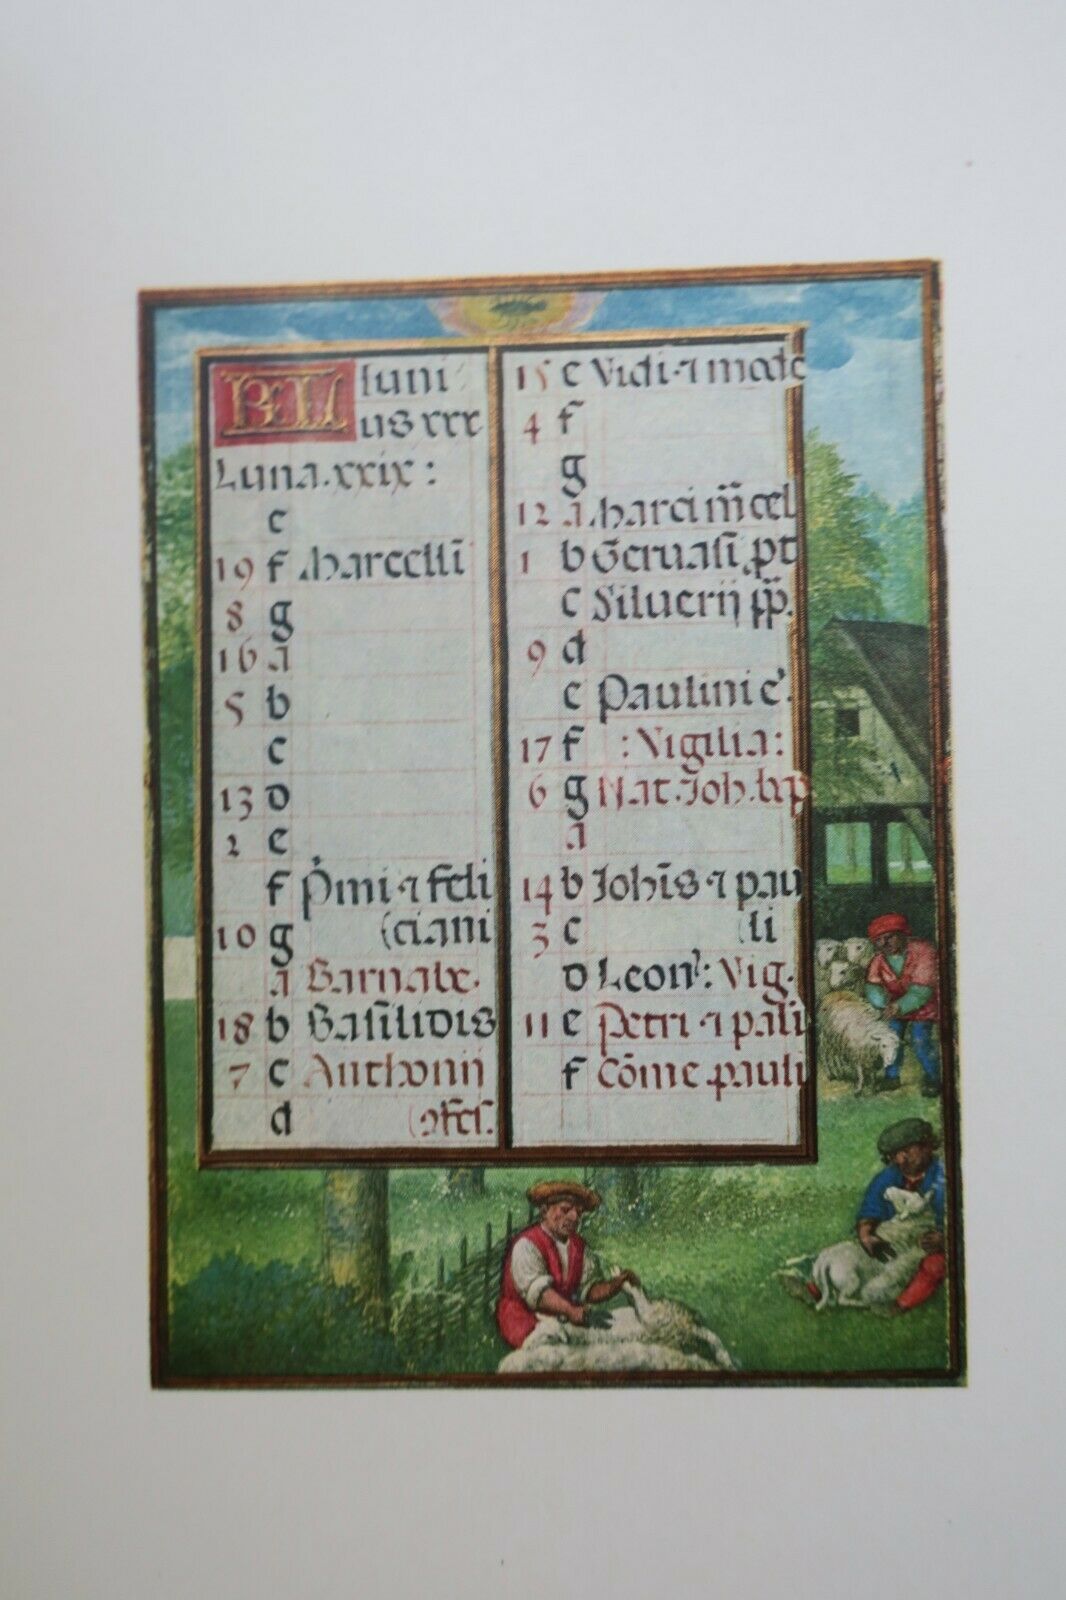 KL Iuni
us xxx
Luna.xxix:
e
19 f Marcelli
8 g
16 a
5 b
c
13 d
2 e
f Pmi ⁊ feli
10 g (ciani
a Barnabe.
18 b Basilidis
7 c Anthonii
d (ↄfes.
15 e Vidi ⁊ mode
4 f
g
12 a Marci m̄ cel
1 b Geruasi pt
c Siluerij pp.
9 d
e Paulini e'.
17 f :Vigilia:
6 g Nat.Joh.bap
a
14 b Johis ⁊ pau
3 c (li
d Leon: Vig.
11 e Petri ⁊ pali
f Cōme pauli